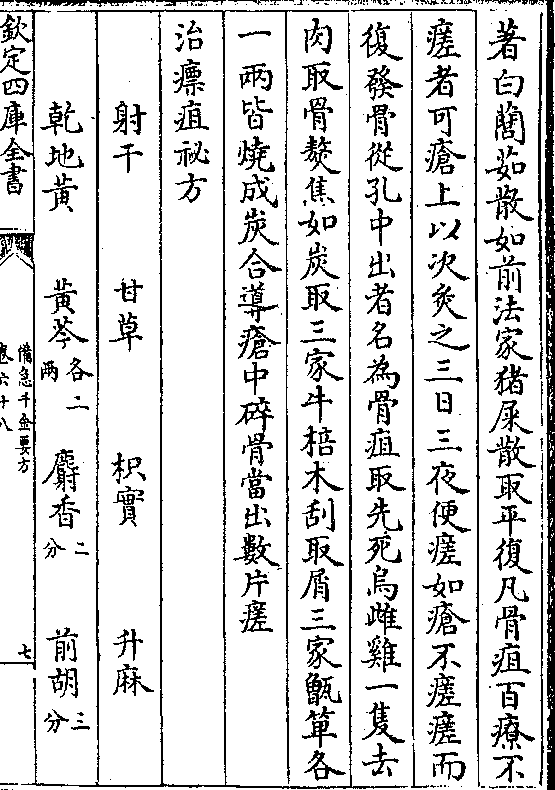 著白䕡茹散如前法家猪屎散取平復凡骨疽百療不
瘥者可瘡上以次灸之三日三夜便瘥如瘡不瘥瘥而
復發骨從孔中出者名為骨疽取先死烏雌雞一隻去
肉取骨熬焦如炭取三家牛棓木刮取屑三家甑箄各
一兩皆燒成炭合導瘡中碎骨當出數片瘥
治瘭疽祕方
射干 甘草 枳實 升麻
乾地黃 黃芩各二兩 麝香二分 前胡三分
欽定四庫全書
備急千金要方
卷六十八
七